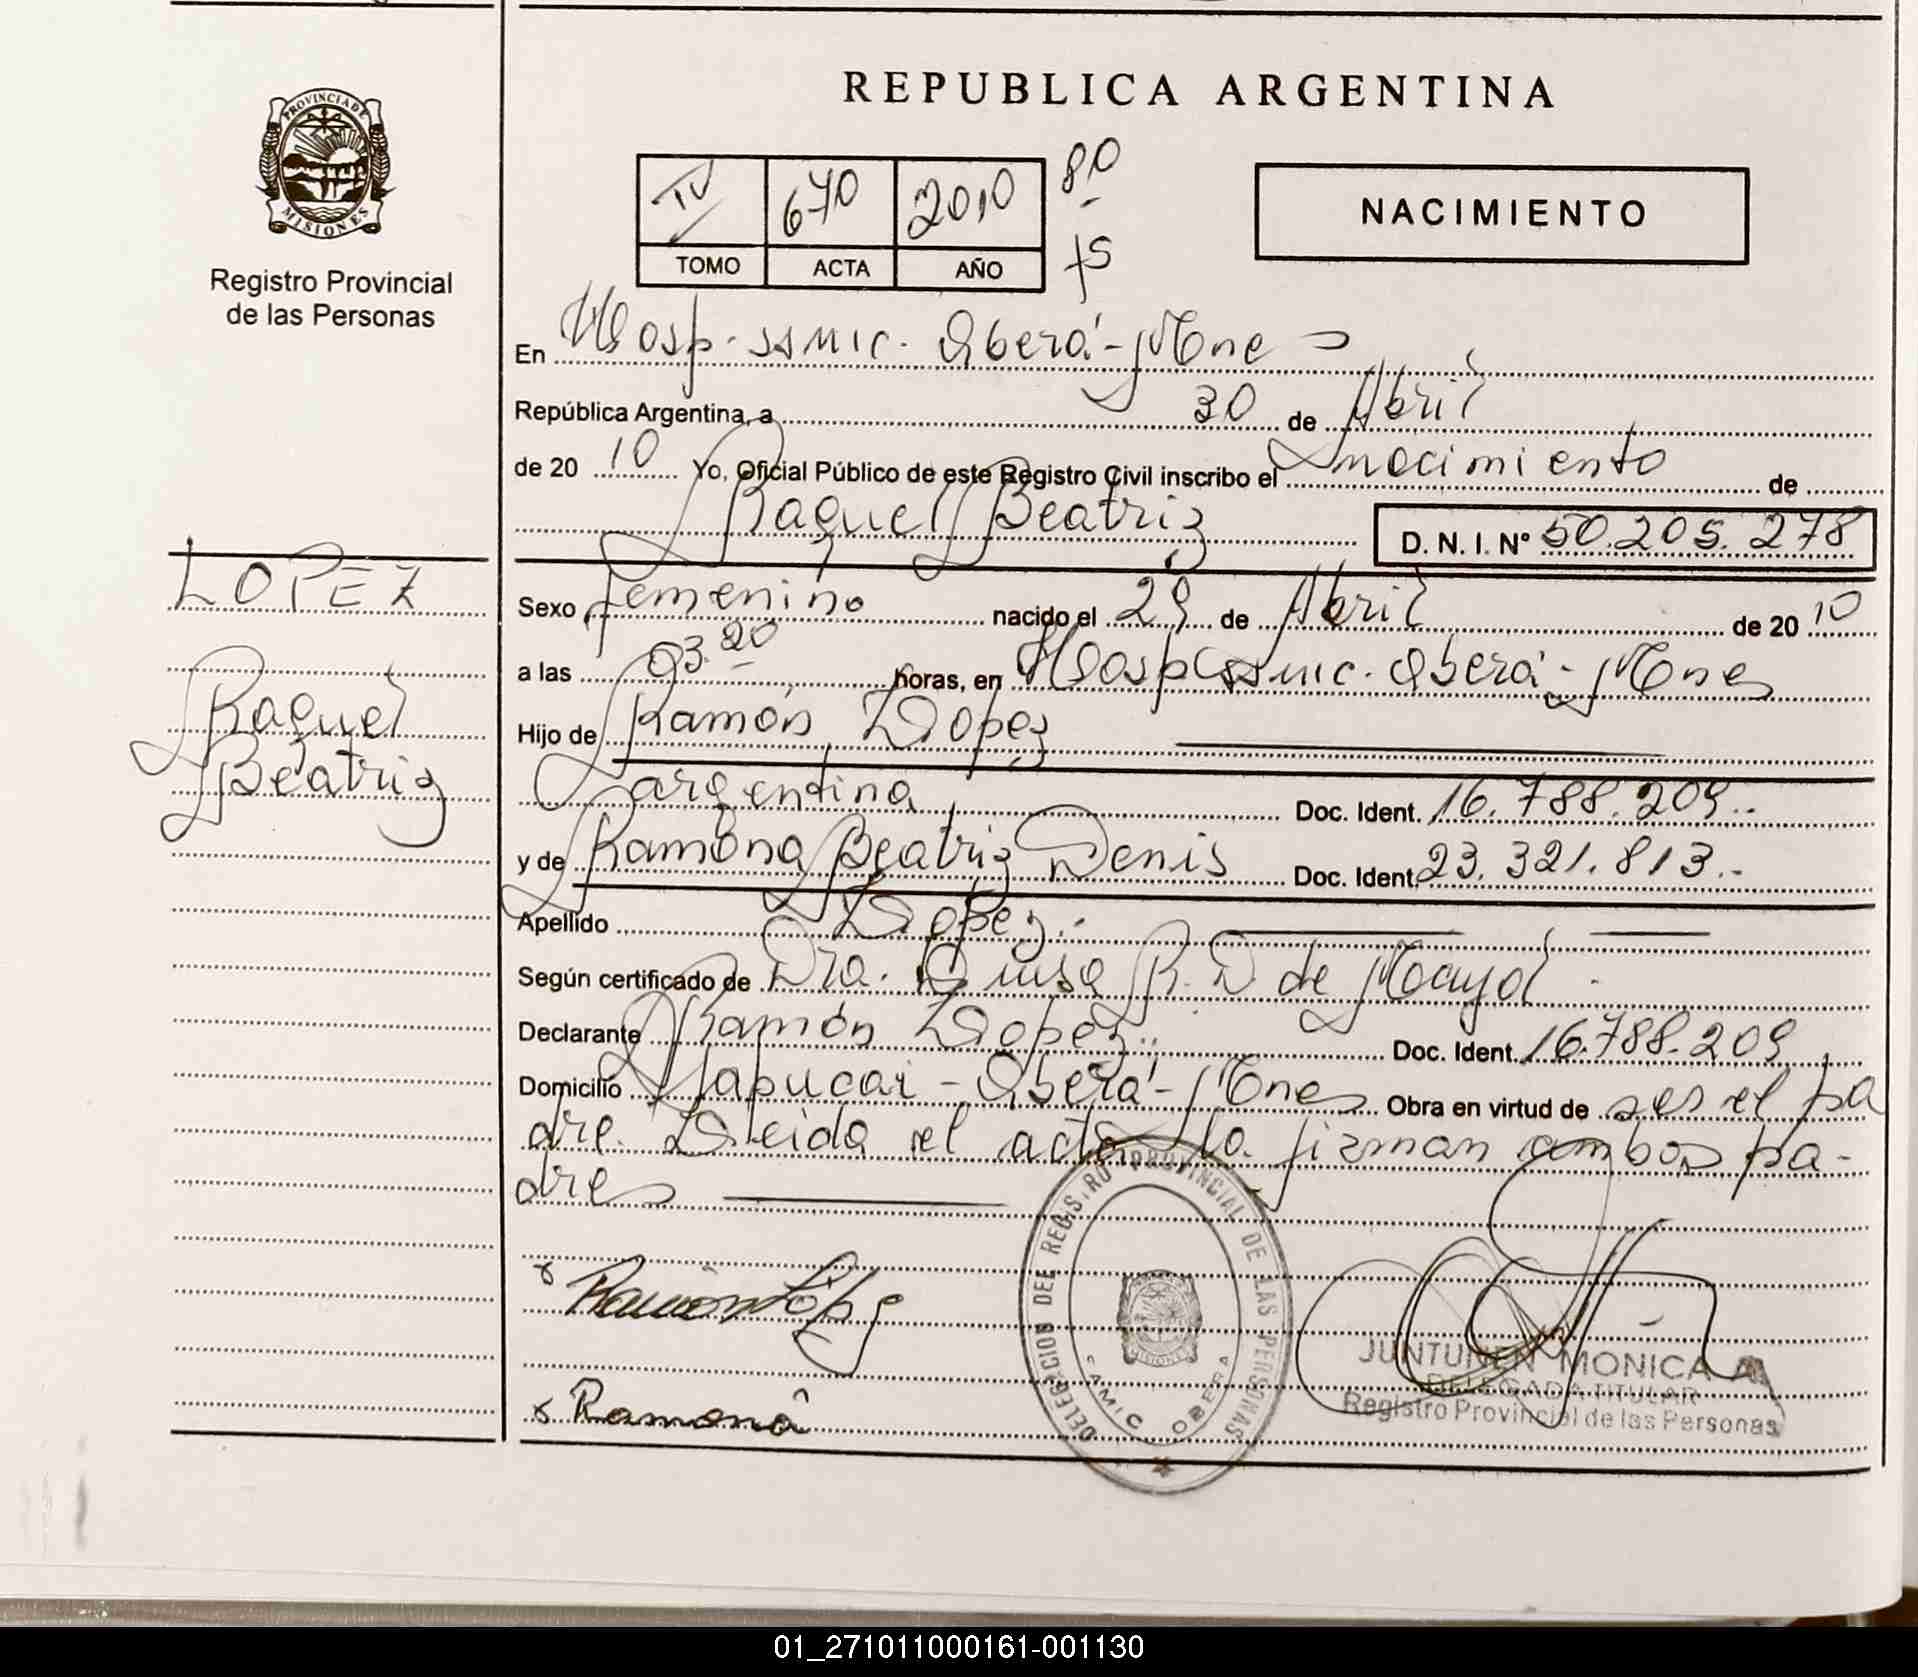 REPUBLICA ARGENTINA
PROVINCIA DE
MISIONES
Registro Provincial
de las Personas
IV 670 2010 80
TOMO ACTA AÑO
NACIMIENTO
En Hosp. ssmic. Oberá - Mnes
República Argentina, a 30 de Abril
de 20 10 Yo, Oficial Público de este Registro Civil inscribo el nacimiento de
Raquel Beatriz D. N. I. Nº 50.205.278
LOPEZ
Raquel
Beatriz
Sexo femenino nacido el 29 de Abril de 20 10
a las 03.20 horas, en Hosp ssmic. Oberá - Mnes
Hijo de Ramón Lopez
argentina Doc. Ident. 16.788.209..
y de Ramona Beatriz Denis Doc. Ident. 23.321.813.-
Apellido Lopez.-
Según certificado de Dra. Luisa R. D de Mayol.
Declarante Ramón Lopez.. Doc. Ident. 16.788.209
Domicilio Yapucai - Oberá - Mnes Obra en virtud de ser el pa
dre. Leida el acta la firman ambos pa-
dres
Ramón López
Ramona
DEL REGISTRO PROVINCIAL DE LAS PERSONAS
OBERA
MISIONES
JUNTUNEN MONICA A
DELEGADA TITULAR
Registro Provincial de las Personas
01_271011000161-001130